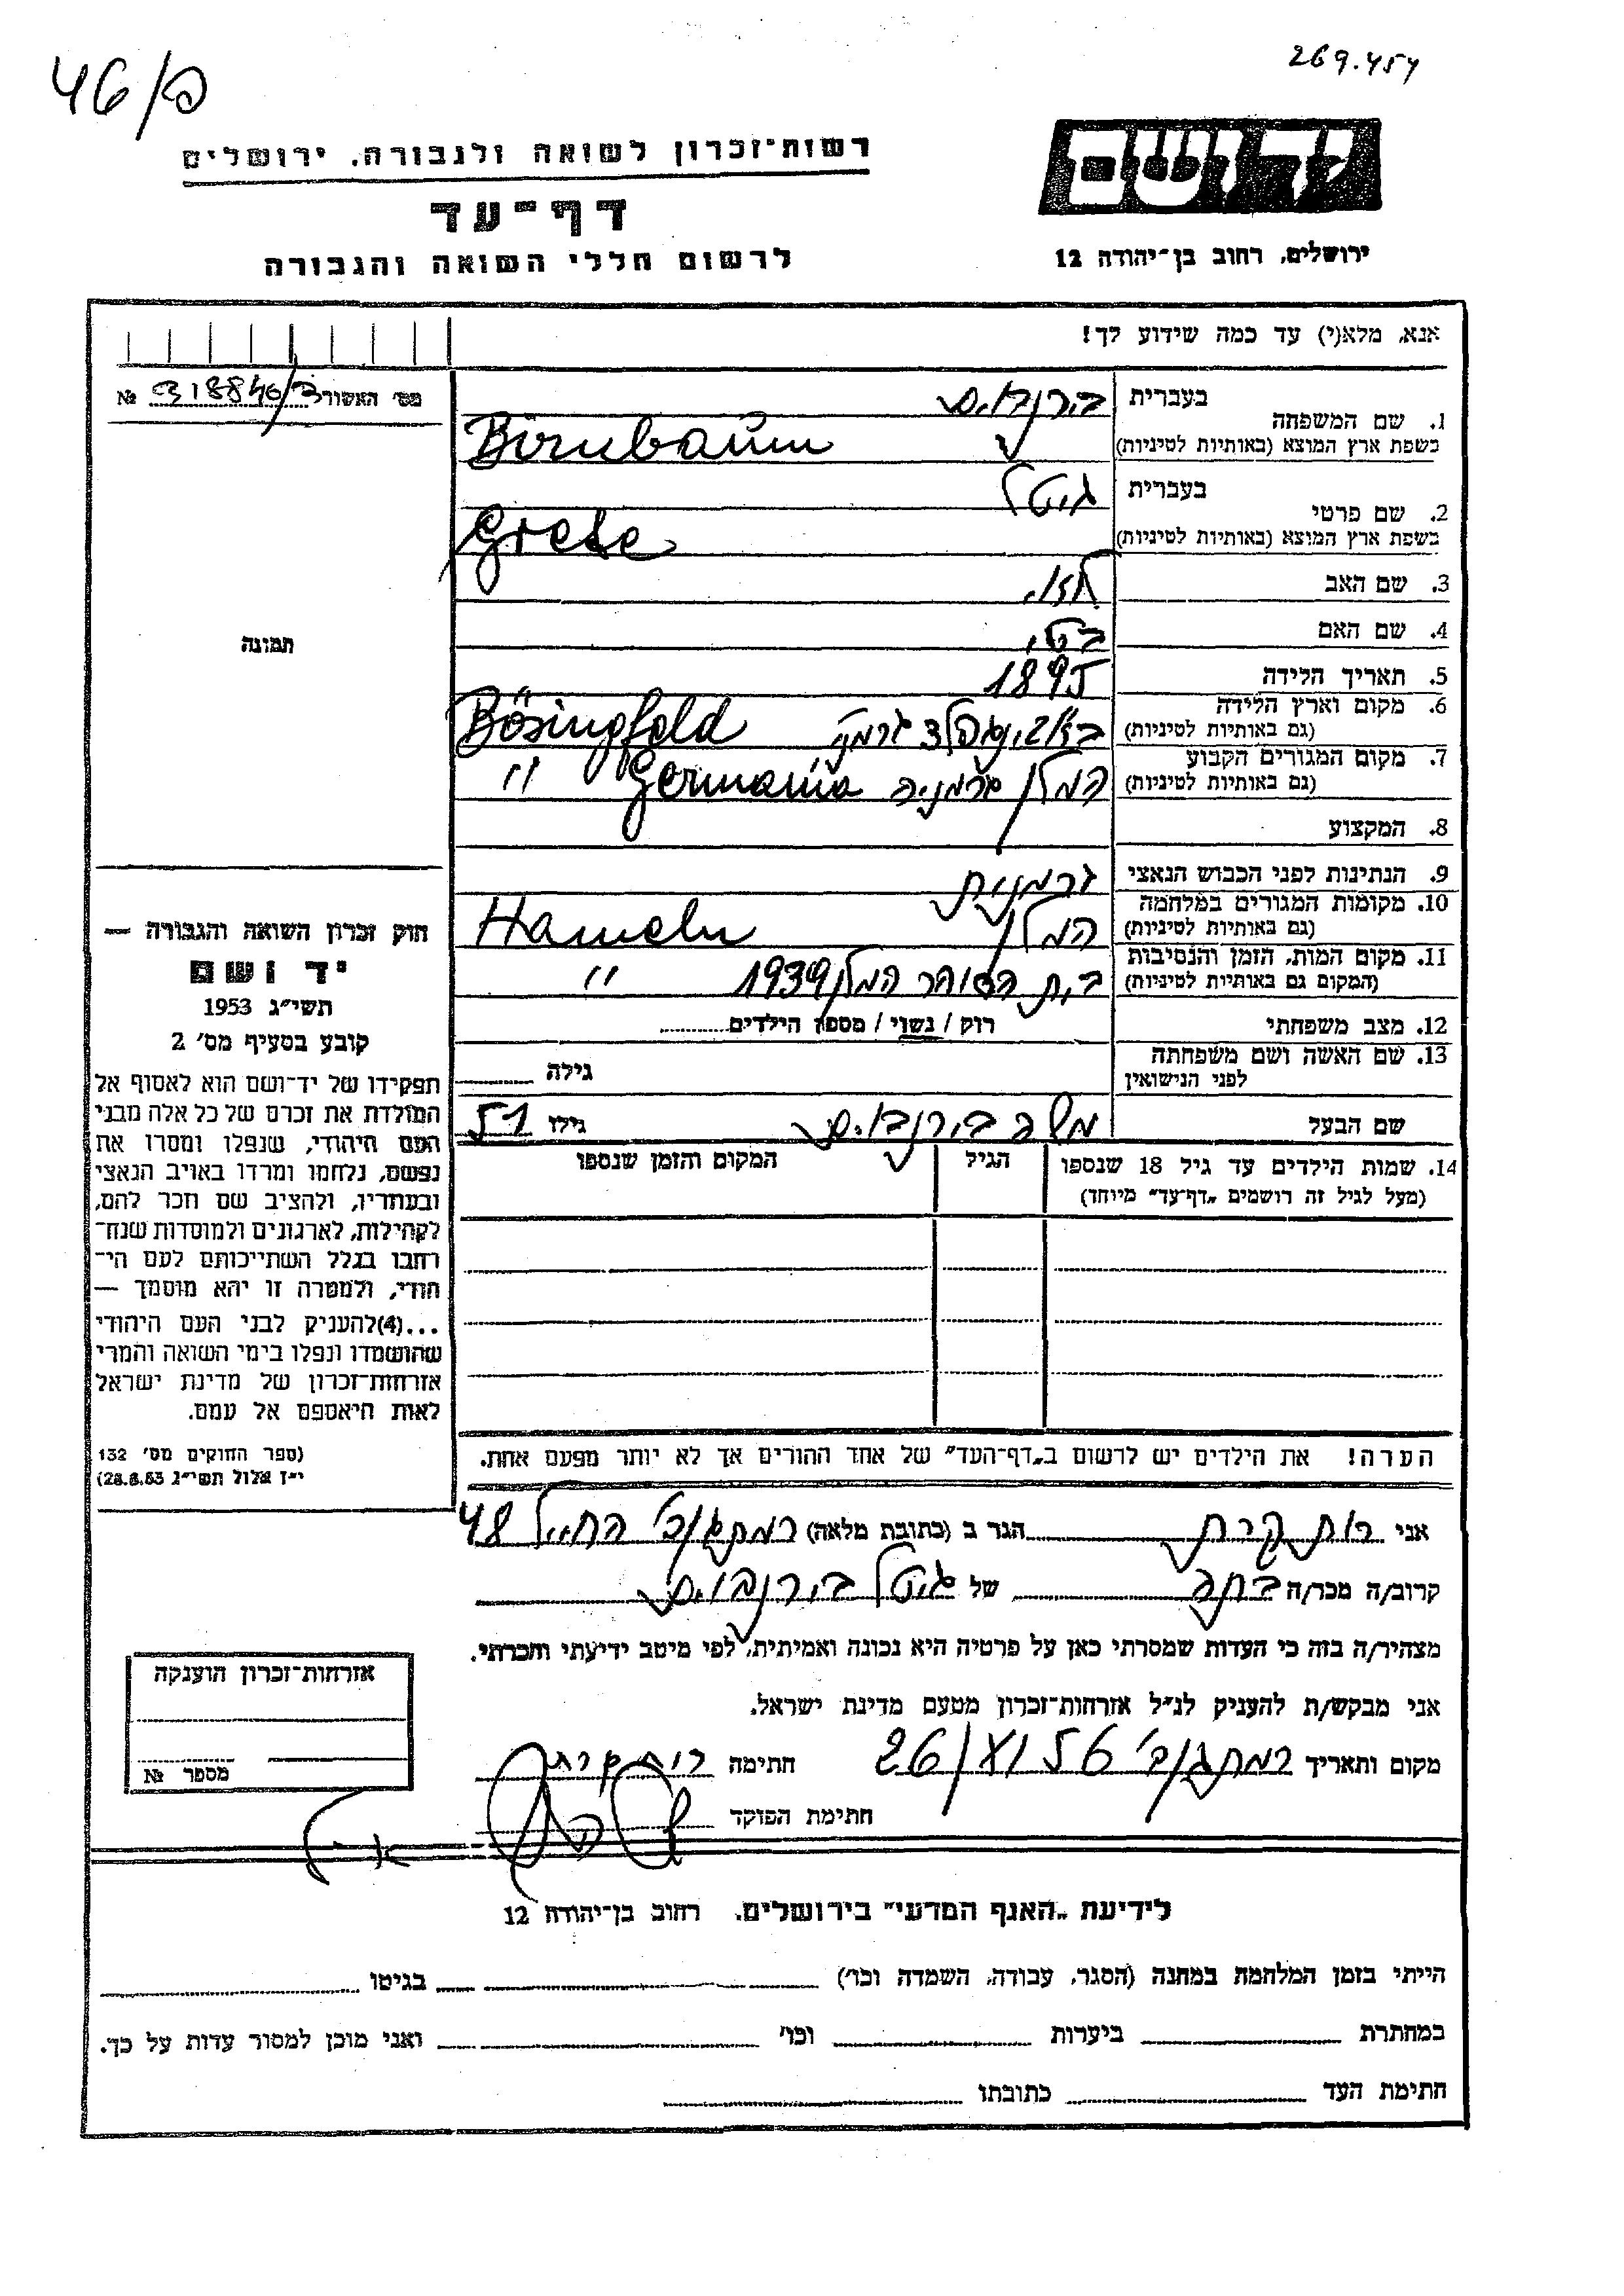 46/פ
269.454
רשות-זכרון לשואה ולגבורה, ירושלים
דף-עד
לרשום חללי השואה והגבורה
יד ושם
ירושלים, רחוב בן-יהודה 12
אנא, מלא(י) עד כמה שידוע לך!
מס' האשור № 318846/3
תמונה
1. שם המשפחה בעברית בירנבוים
בשפת ארץ המוצא (באותיות לטיניות) Birnbaum
2. שם פרטי בעברית גיטל
בשפת ארץ המוצא (באותיות לטיניות) Grete
3. שם האב
4. שם האם
5. תאריך הלידה 1895
6. מקום וארץ הלידה
(גם באותיות לטיניות) Bösingfeld
7. מקום המגורים הקבוע
(גם באותיות לטיניות) המלן גרמניה Germania "
8. המקצוע
9. הנתינות לפני הכבוש הנאצי גרמנית
10. מקומות המגורים במלחמה
(גם באותיות לטיניות) המלן Hameln
11. מקום המות, הזמן והנסיבות
(המקום גם באותיות לטיניות) בית הסוהר המלן 1939 "
12. מצב משפחתי רוק / נשוי / מספר הילדים
13. שם האשה ושם משפחתה
לפני הנישואין גילה
שם הבעל משה בירנבוים גילו 51
14. שמות הילדים עד גיל 18 שנספו
(מעל לגיל זה רושמים "דף-עד" מיוחד)
הגיל
המקום והזמן שנספו
הערה! את הילדים יש לרשום ב"דף-העד" של אחד ההורים אך לא יותר מפעם אחת.
חוק זכרון השואה והגבורה —
יד ושם
תשי"ג 1953
קובע בסעיף מס' 2
תפקידו של יד-ושם הוא לאסוף אל
המולדת את זכרם של כל אלה מבני
העם היהודי, שנפלו ומסרו את
נפשם, נלחמו ומרדו באויב הנאצי
ובעוזריו, ולהציב שם וזכר להם,
לקהילות, לארגונים ולמוסדות שנח־
רבו בגלל השתייכותם לעם הי־
הודי, ולמטרה זו יהא מוסמך —
...(4) להעניק לבני העם היהודי
שהושמדו ונפלו בימי השואה והמרי
אזרחות-זכרון של מדינת ישראל
לאות היאספם אל עמם.
(ספר החוקים מס' 132
י"ז אלול תשי"ג 28.8.53)
אני רות קרת הגר ב (כתובת מלאה) רמתגן רב' החייל 48
קרוב/ה מכר/ה בתה של גיטל בירנבוים
מצהיר/ה בזה כי העדות שמסרתי כאן על פרטיה היא נכונה ואמיתית, לפי מיטב ידיעתי והכרתי.
אני מבקש/ת להעניק לנ"ל אזרחות-זכרון מטעם מדינת ישראל.
מקום ותאריך 26/ חתימה רות קרת
חתימת הפוקד
אזרחות-זכרון הוענקה
מספר №
לידיעת "האגף המדעי" בירושלים, רחוב בן-יהודה 12
הייתי בזמן המלחמה במחנה (הסגר, עבודה, השמדה וכו') בגיטו
במחתרת ביערות וכו' ואני מוכן למסור עדות על כך.
חתימת העד כתובתו